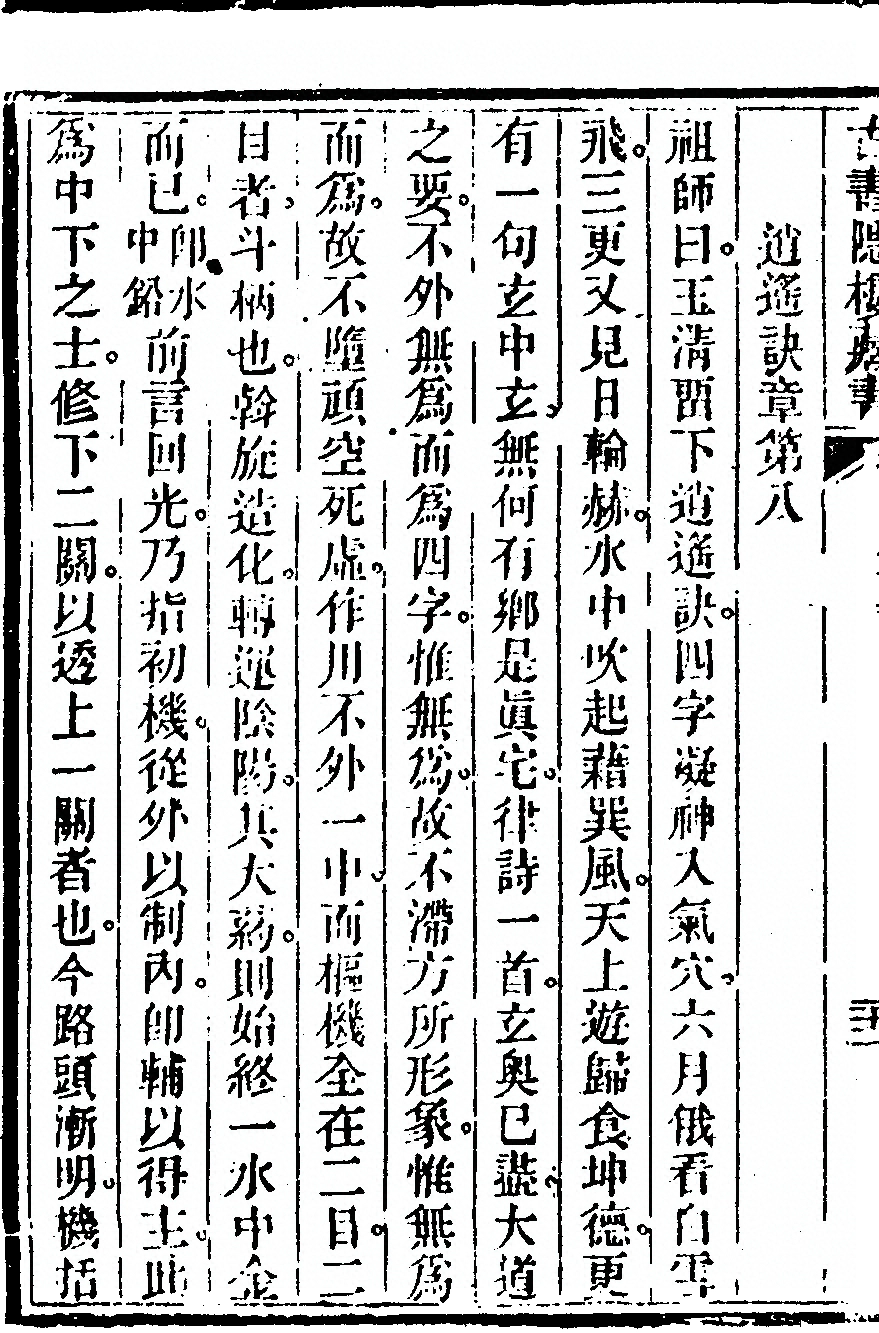 古書隱樓藏書
逍遙訣章第八
祖師曰玉清留下逍遙訣四字凝神入氣穴六月俄看白雪
飛三更又見日輪赫水中吹起藉巽風天上遊歸食坤德更
有一句玄中玄無何有鄉是眞宅律詩一首玄奧已盡大道
之要不外無爲而爲四字惟無爲故不滯方所形象惟無爲
而爲故不墮頑空死虛作用不外一中而樞機全在二目二
目者斗柄也斡旋造化轉運陰陽其大藥則始終一水中金
而已卽水中鉛前言回光乃指初機從外以制內卽輔以得主此
爲中下之士修下二關以透上一關者也今路頭漸明機括